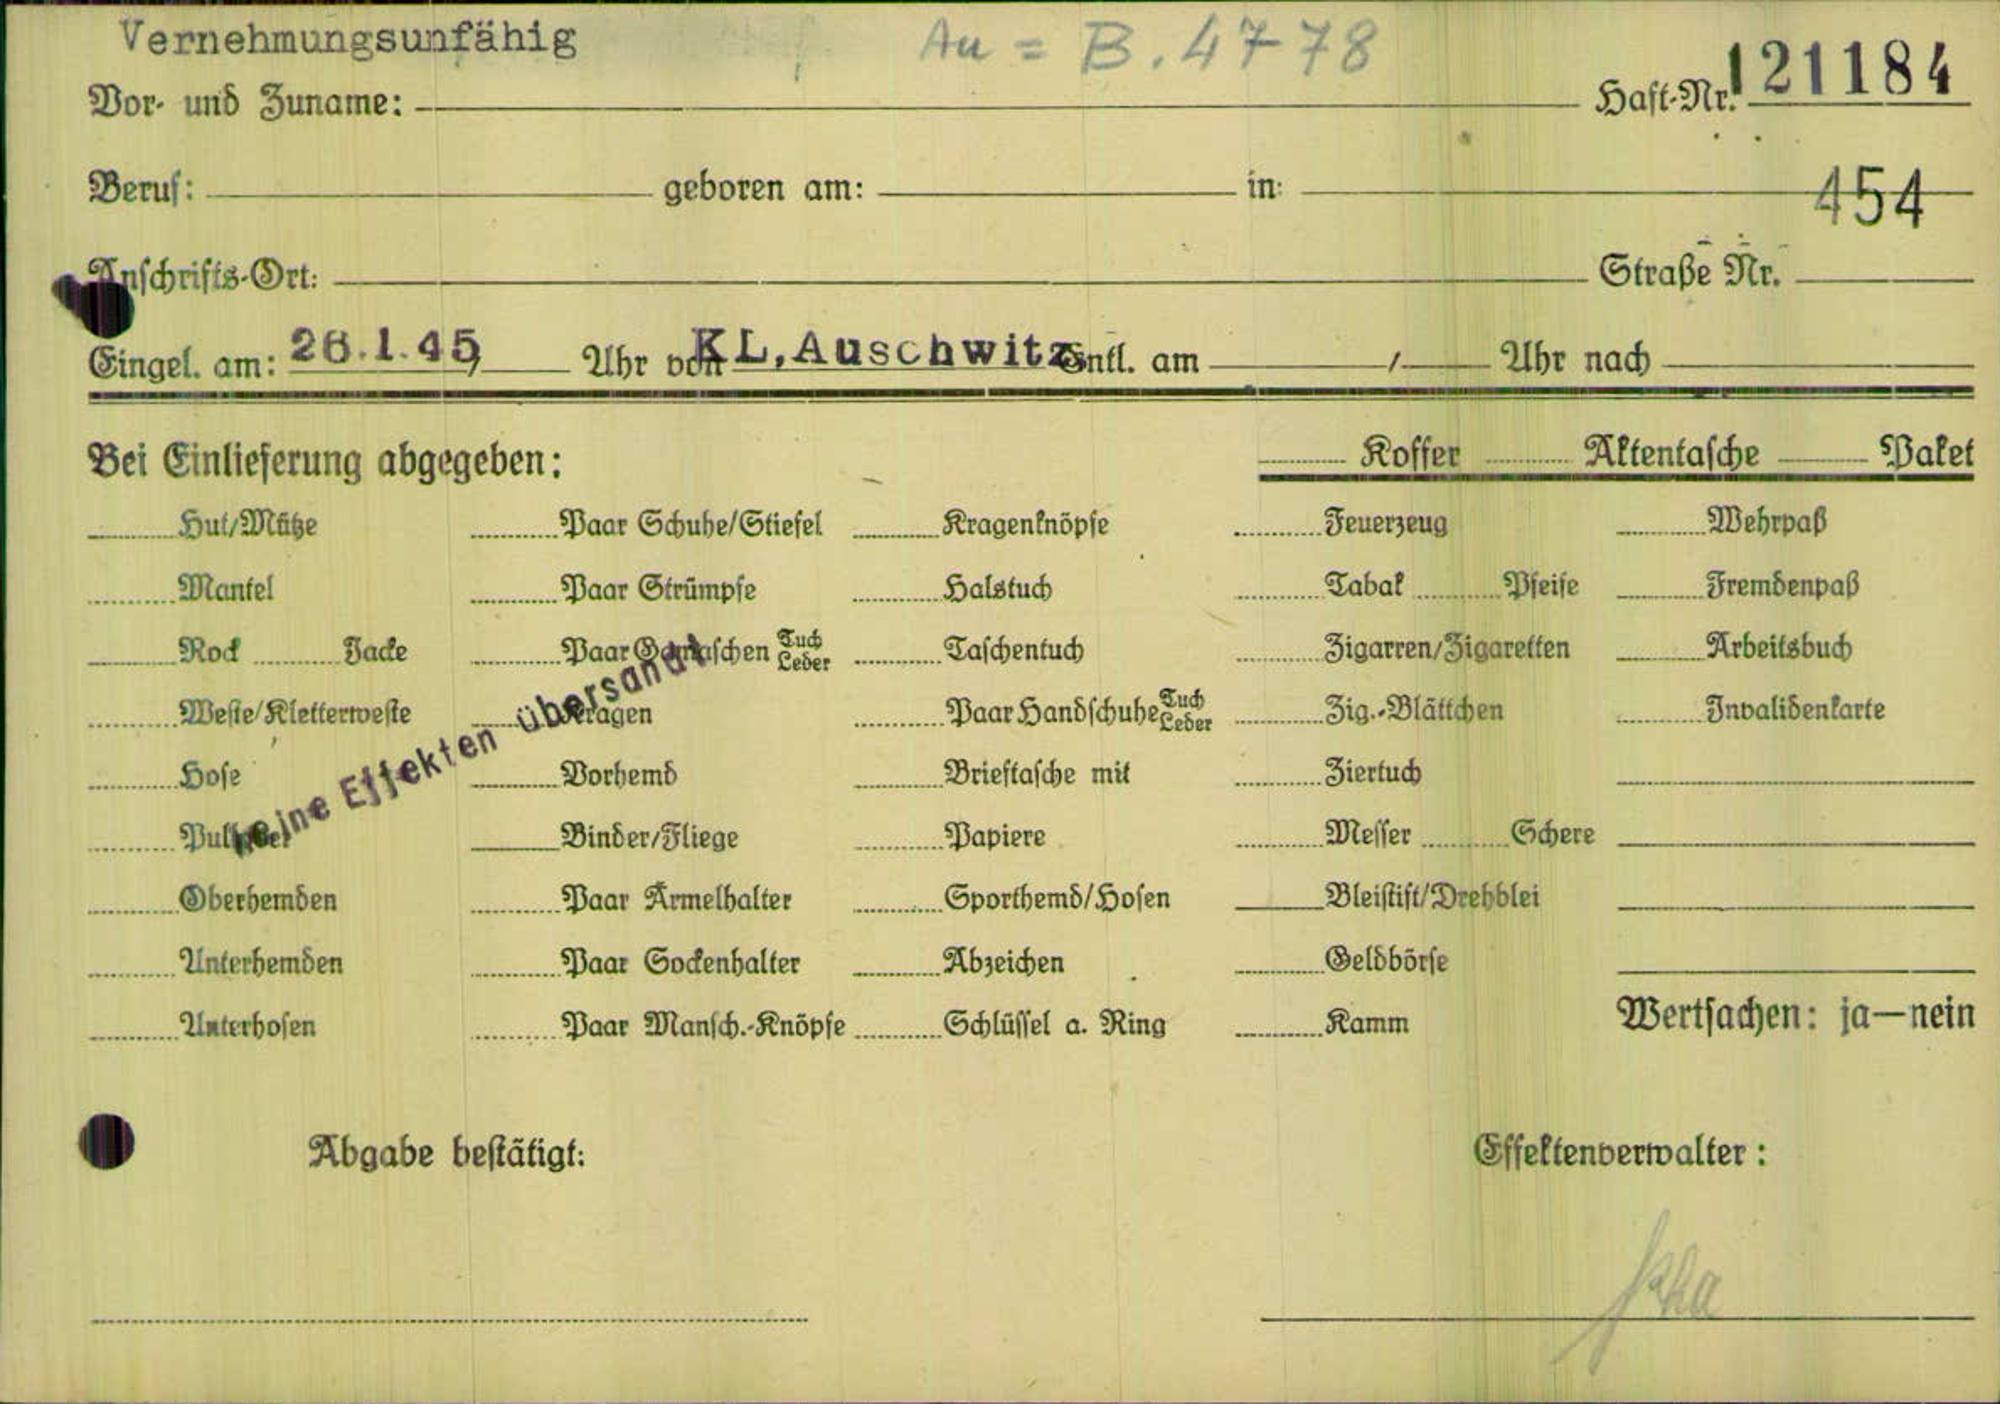 Vernehmungsunfähig
Au = B.4778
Vor- und Zuname: Haft-Nr. 121184
Beruf: geboren am: in: 454
Anschrifts-Ort: Straße Nr.
Eingel. am: 26.1.45, Uhr von KL, Auschwitz Entl. am / Uhr nach
Bei Einlieferung abgegeben: Koffer Aktentasche Paket
Hut/Mütze Paar Schuhe/Stiefel Kragenknöpfe Feuerzeug Wehrpaß
Mantel Paar Strümpfe Halstuch Tabak Pfeife Fremdenpaß
Rock Jacke Paar Gamaschen Tuch Leder Taschentuch Zigarren/Zigaretten Arbeitsbuch
Weste/Kletterweste Kragen Paar Handschuhe Tuch Leder Zig.-Blättchen Invalidenkarte
Hose Vorhemd Brieftasche mit Ziertuch
Pullover Binder/Fliege Papiere Messer Schere
Oberhemden Paar Ärmelhalter Sporthemd/Hosen Bleistift/Drehblei
Unterhemden Paar Sockenhalter Abzeichen Geldbörse
Unterhosen Paar Mansch.-Knöpfe Schlüssel a. Ring Kamm Wertsachen: ja—nein
keine Effekten übersandt
Abgabe bestätigt: Effektenverwalter: